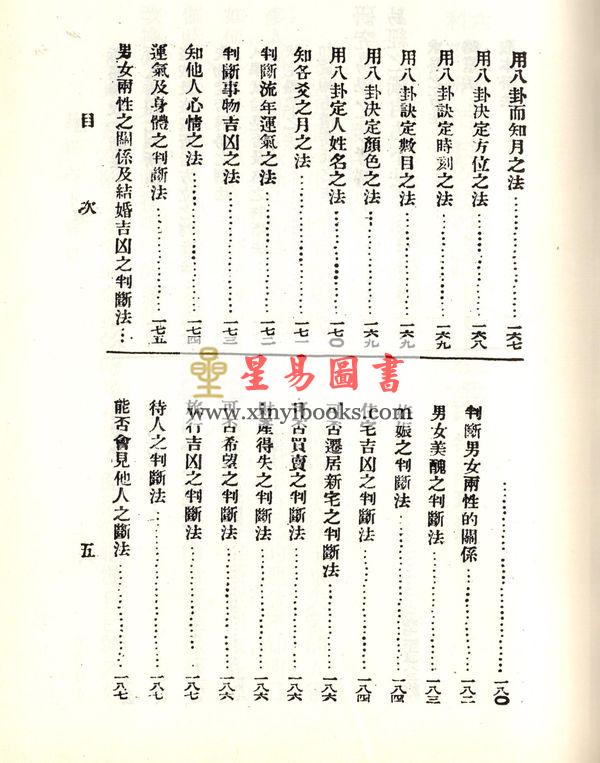 用八卦而知月之法…………一六七
用八卦決定方位之法…………一六八
用八卦訣定時刻之法…………一六九
用八卦訣定數目之法…………一六九
用八卦決定顏色之法…………一六九
用八卦定人姓名之法…………一七〇
知各爻之月之法…………一七一
判斷流年運氣之法…………一七二
判斷事物吉凶之法…………一七三
知他人心情之法…………一七四
運氣及身體之判斷法…………一七五
男女兩性之關係及結婚吉凶之判斷法…
…………一八〇
判斷男女兩性的關係…………一八二
男女美醜之判斷法…………一八三
娠之判斷法…………一八四
住宅吉凶之判斷法…………一八四
可否遷居新宅之判斷法…………一八六
可否買賣之判斷法…………一八六
財產得失之判斷法…………一八六
可否希望之判斷法…………一八六
旅行吉凶之判斷法…………一八七
待人之判斷法…………一八七
能否會見他人之斷法…………一八七
目次
五
星易圖書
www.xinyibooks.com